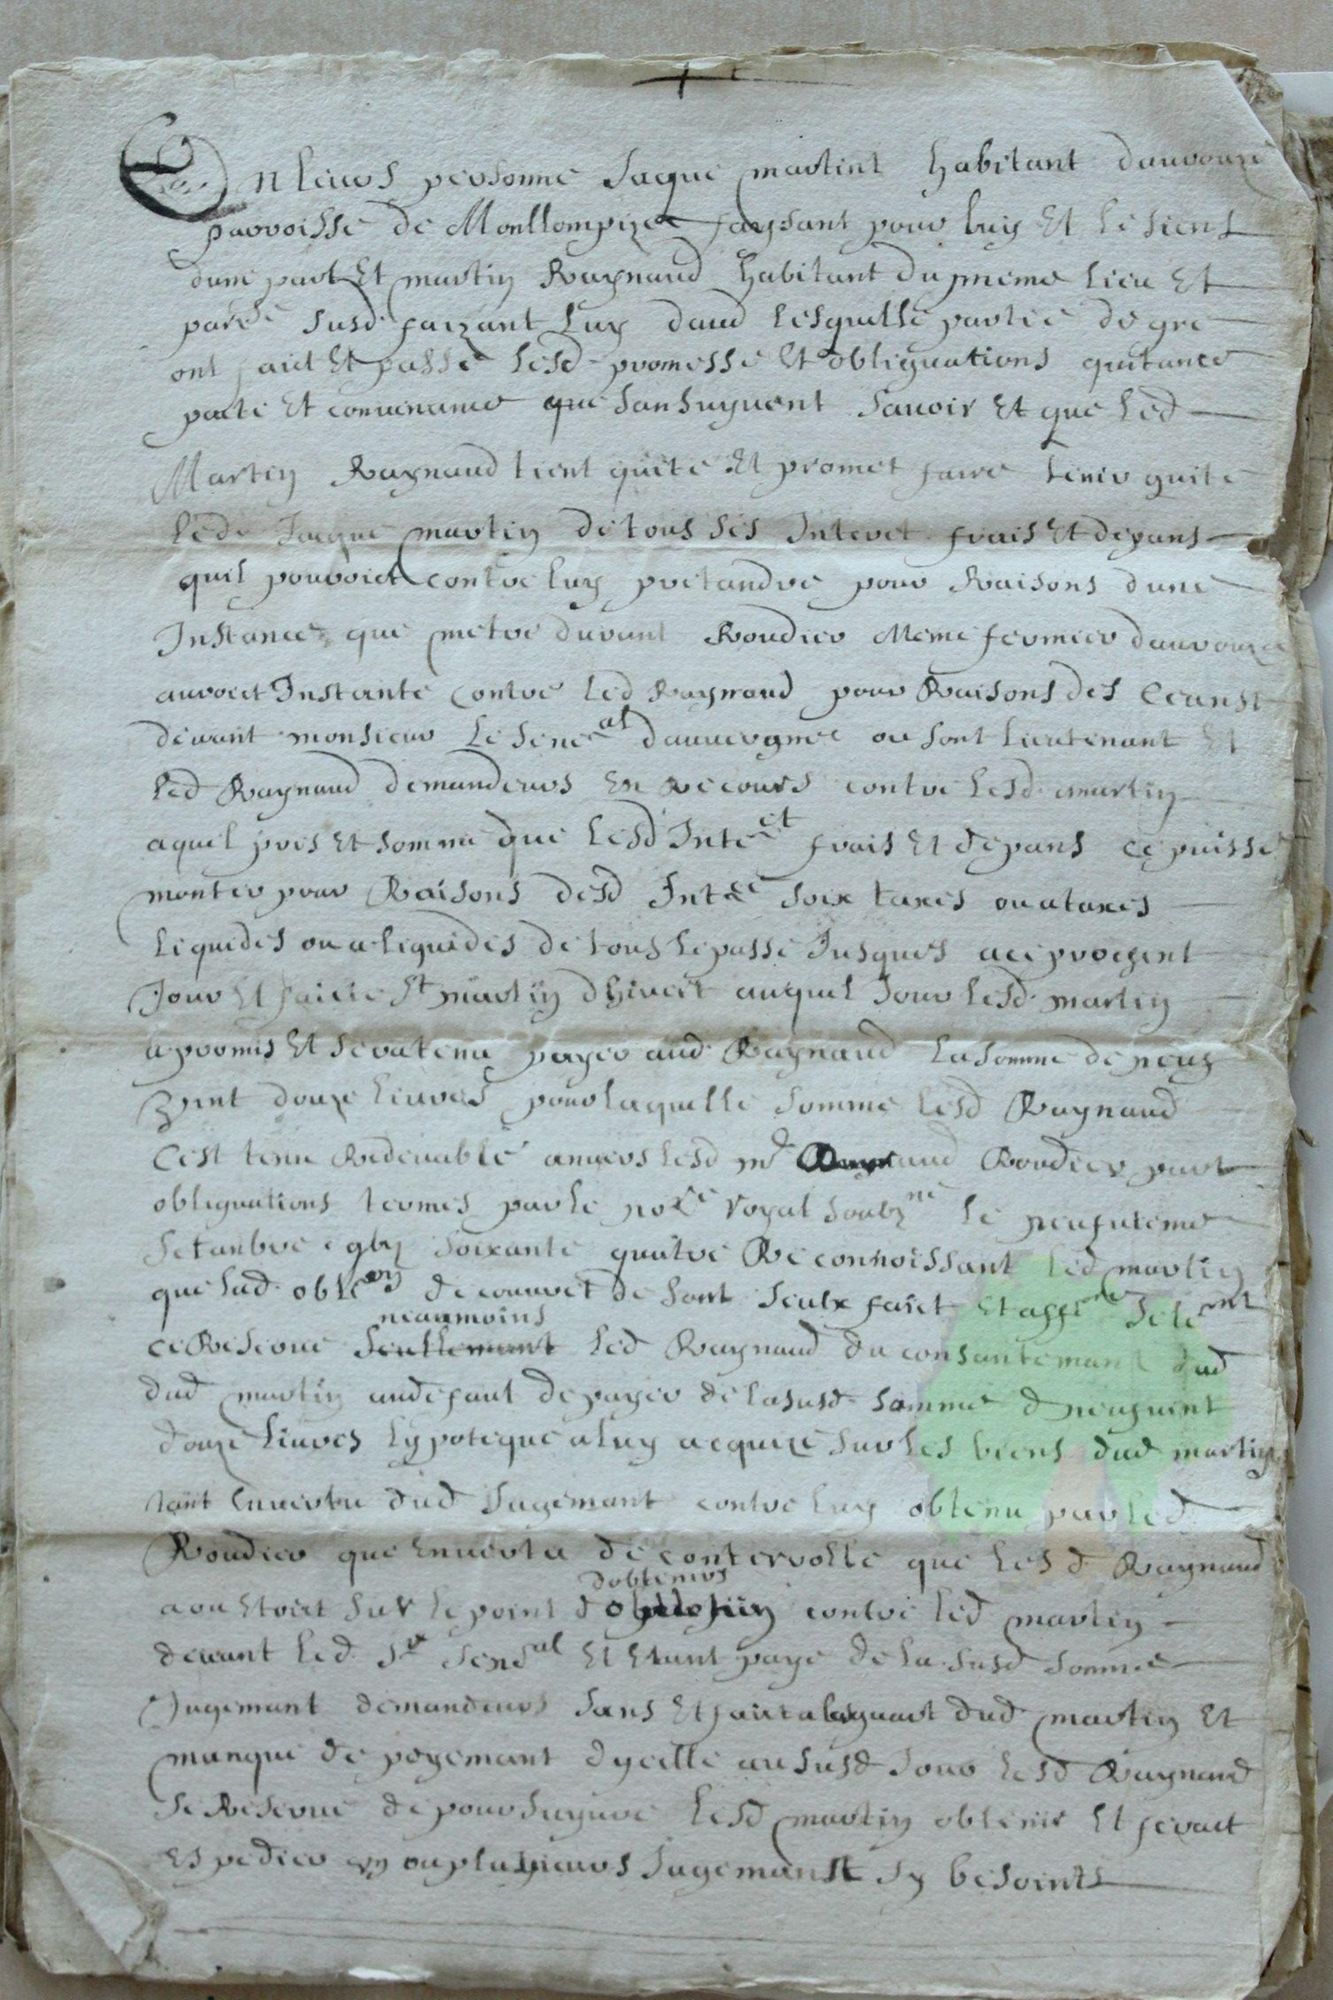 En leurs personne Jaque martint habitant daurouze
parroisse de Mollompize faysant pour luy Et le siens
dune part Et martin Raynaud habitant du meme lieu Et
parse susd faizant luy daud lesquelle partie de gre
ont faict Et passe lesd promesse Et obliguations quitance
pacte Et convenance que sansuyvent Savoir Et que led
Martin Raynaud tient quite Et promet faire tenir quite
led Jaque martin de tous ses Interet frais Et depans
quil pouroict contre luy pretandre pour Raisons dune
Instance que metre durant Roudier Meme fermier daurouze
auroict Instante contre led Raynaud pour Raisons des Ceanst
devant monsieur le Seneal dauvergne ou sont lieutenant Et
led Raynaud demandeurs En Recours contre lesd martin
a quel pris Et somme que lesd Inteet frais Et depans ce puisse
monter pour Raisons desd Inte soix taxes ou a taxes
liquides ou a liquides de tous le passe Jusques a ce prochent
Jour Et faicte St martin dhivert auquel Jour lesd martin
a promis Et sera tenu payer aud Raynaud la somme de neuf
vint douze livres pour laquelle somme lesd Raynaud
Cest tenu Redevable anvers lesd md Roudier part
obliguations termes par le nore royal soubzne le neufvieme
setanbre soixante quatre Reconnoissant led martin
que lad obleon de couvret de sont seulx faict Et
ce Reserve neanmoins led Raynaud du consantemant dud
dud martin audefaut de payer de la susd somme de neufvint
douze livres lypoteque a luy acquize sur les biens dud martin
tant En vertu dud Jugemant contre luy obtenu par led
Roudier que En vertu de contervolle que lesd Raynaud
a ou Etoict sur le point dobtenirs contre led martin
devant led Sr Senal Et Etant paye de la susd somme
Jugemant demandeurs sans Et faict a lesguart dud martin Et
manque de payemant dycelle au susd Jour lesd Raynaud
se Reserve de poursuyvre lesd martin obtenir Et feract
Espedier un ou plusieurs Jugemanst sy besoints